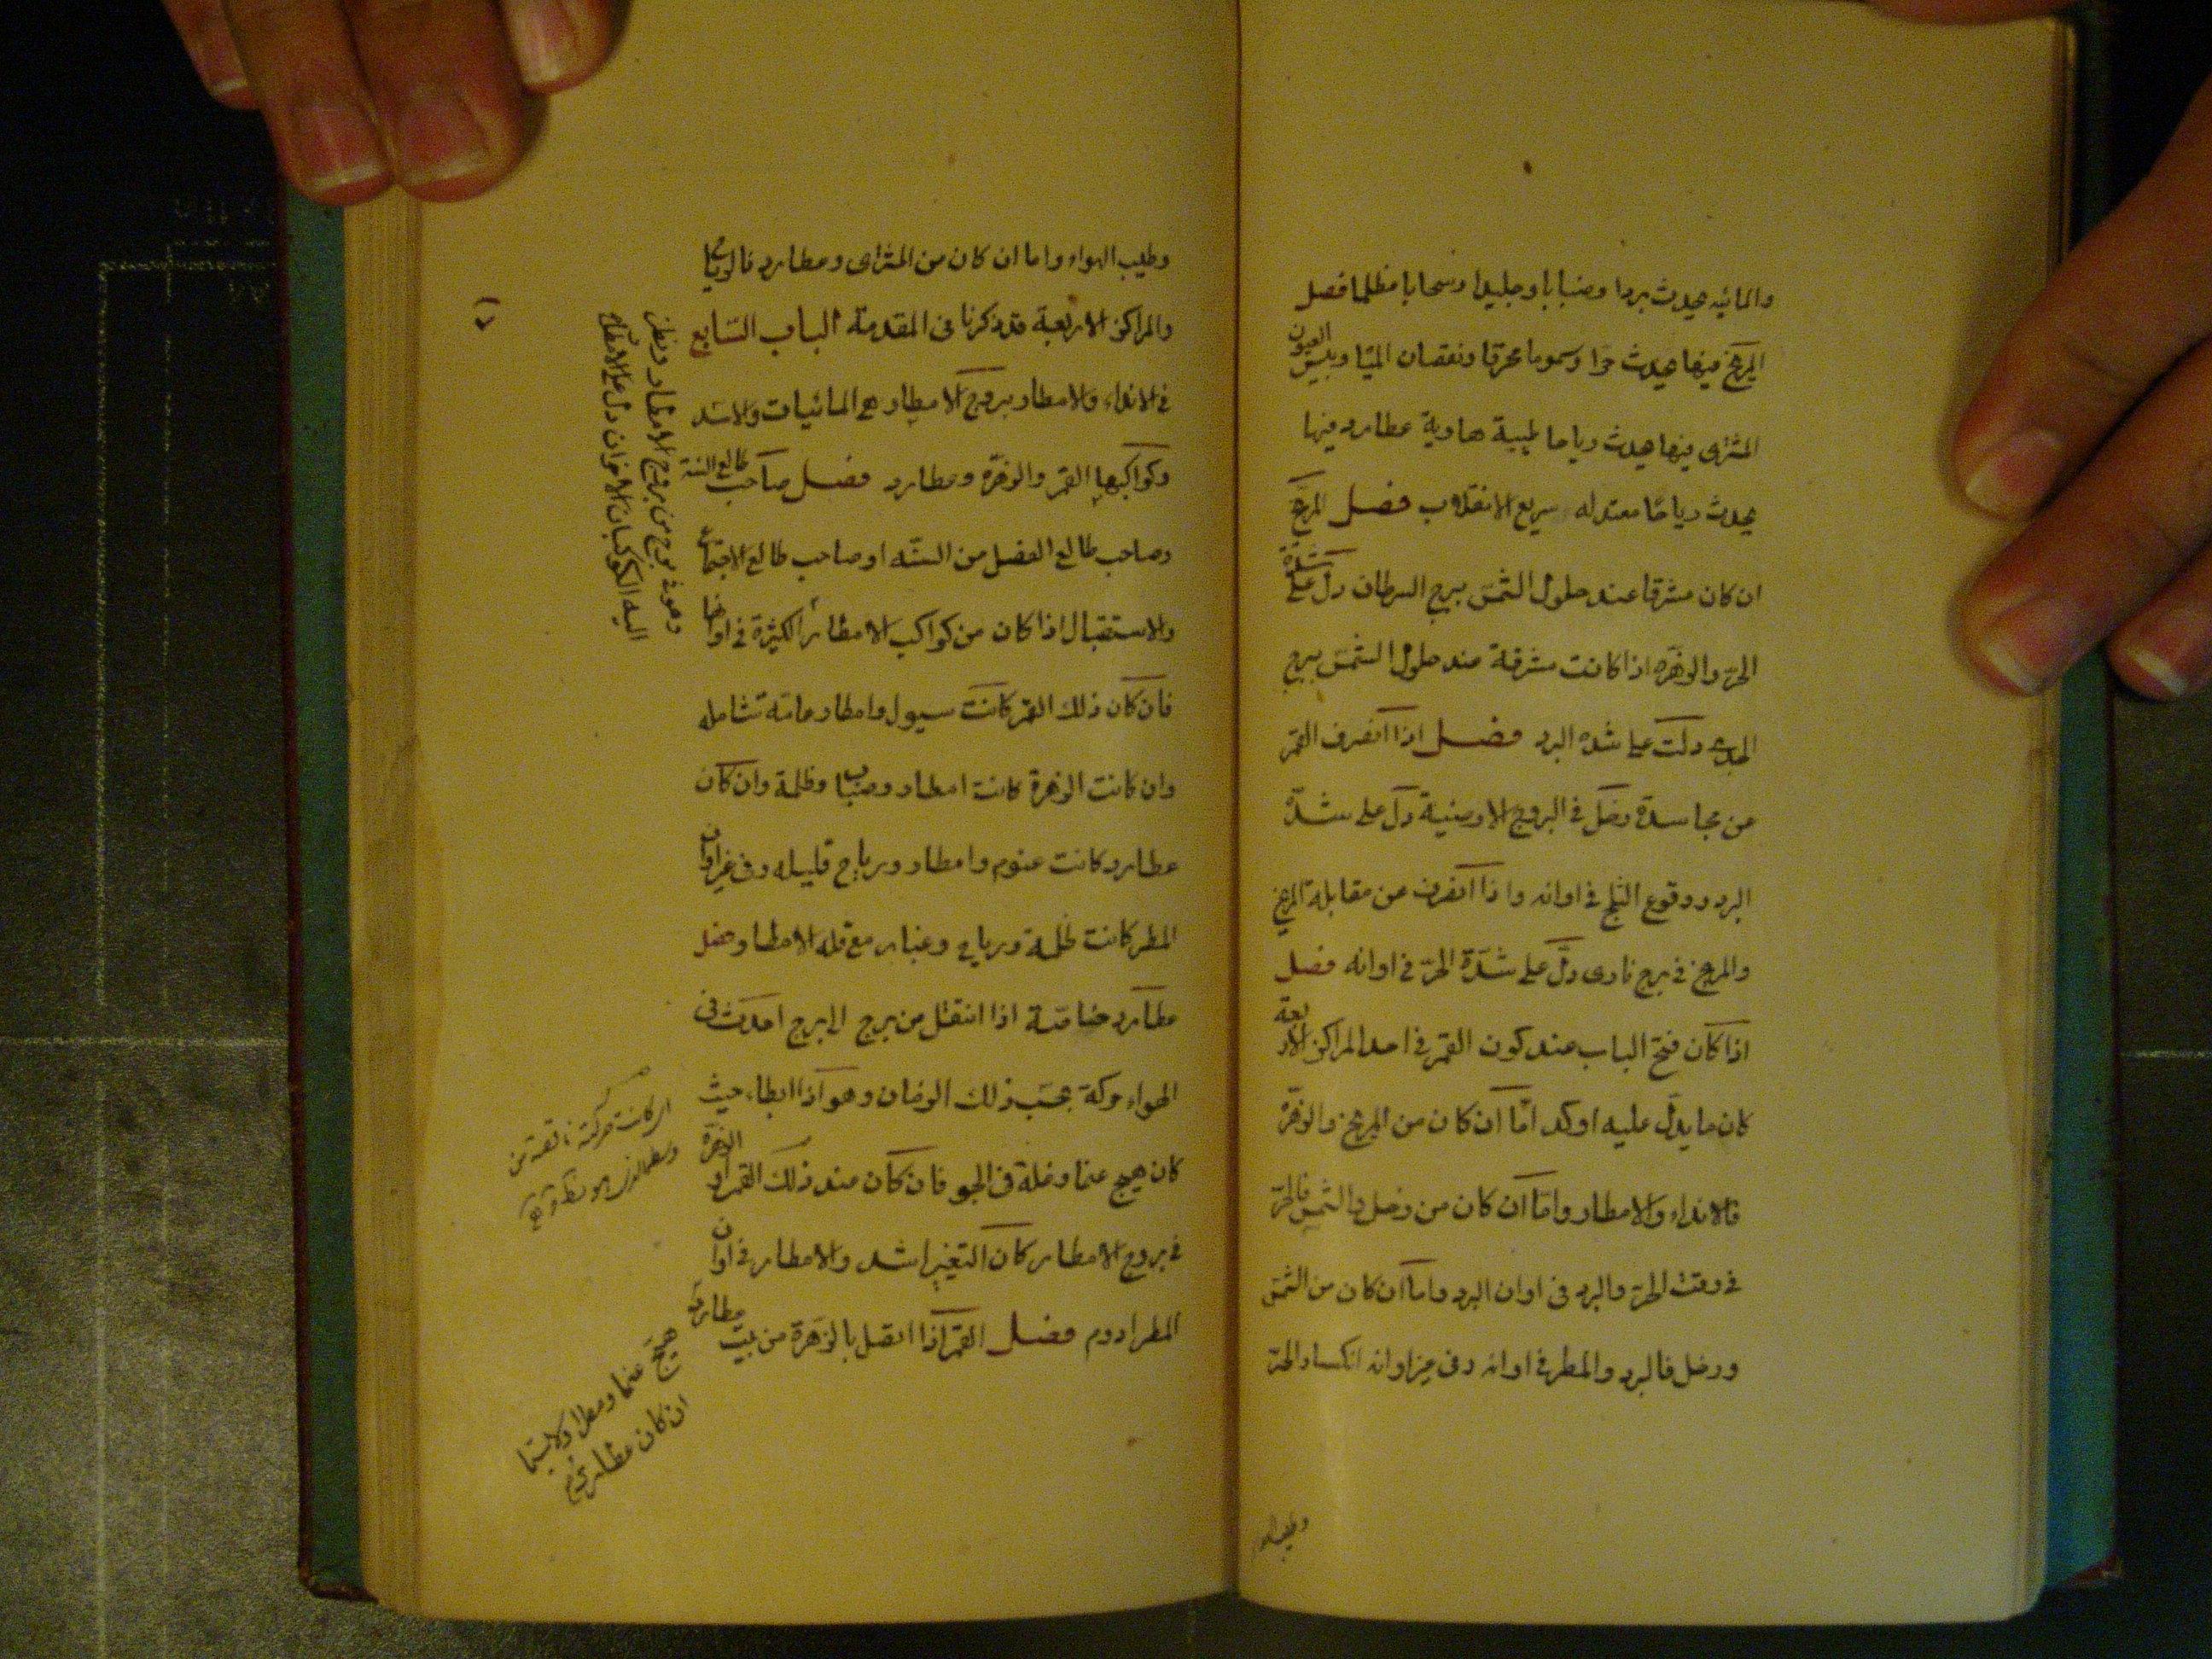 والمائيه يحدث بردا وضبابا وجليدا وسحابا مظلما فصل
المريخ فيها يحدث حرا وسموما محرقا ونقصان المياه ويبس العيون
المشترى فيها يحدث رياحا طيبة هاوية عطارد فيها
يحدث رياحا معتدله سريع الانقلاب فصل المريخ
ان كان مشرقا عند حلول الشمس ببرج السرطان دل على شدة
الحرّ والزهره اذا كانت مشرقة عند حلول الشمس ببرج
الجدى دلت على شده البرد فصل اذا انصرف القمر
عن مجاسدة زحل فى البروج الارضية دل على شدّة
البرد ووقوع الثلج فى اوانه واذا انصرف عن مقابلة المريخ
والمريخ فى برج نارى دلّ على شدّة الحرّ فى اوانه فصل
اذا كان فتح الباب عند كون القمر فى احد المراكز الاربعة
كان ما يدل عليه اوكد امّا ان كان من المريخ والزهرة
فالانداء والامطار وامّا ان كان من زحل والشمس فالحرّ
فى وقت الحرّ والبرد فى اوان البرد واما ان كان من الشمس
وزحل فالبرد والمطر فى اوانه وفى غير اوانه انكسار الحرّ
وطيب الهوا
وطيب الهواء واما ان كان من المشترى وعطارد فالرياح
والمراكز الاربعة قد ذكرنا فى المقدمة الباب السّابع
فى الانداء والامطار بروج الامطار هى المائيات والاسد
وكواكبها القمر والزهرة وعطارد فصل صاحب طالع السنة
وصاحب طالع الفصل من السنّه او صاحب طالع الاجتماع
والاستقبال اذا كان من كواكب الامطار الكثيرة فى اوانها
وهو فى برج من بروج الامطار وينظر
اليه الكوكبان الاخران دل على الامطار
فان كان ذلك القمر كانت سيول وامطار عامّة شامله
وان كانت الزهرة كانت امطار وضباب وظلمة وان كان
عطارد كانت غيوم وامطار ورياح قليله وفى غير اوان
المطر كانت ظلمة ورياح وغبار مع قله الامطار فصل
عطارد خاصّة اذا انتقل من برج الى برج احدث فى
الهواء حركة بحسب ذلك الزمان وهو اذا ابطاء حيث
كان هيج غيما وظلمة فى الجو فان كان عند ذلك القمر او الزهرة
فى بروج الامطار كان التغير اشد والامطار فى اوان
المطر ادوم فصل القمر اذا اتصل بالزهرة من بيت عطارد
هيج غيما ومطرا ولا سيّما
ان كان عطارد